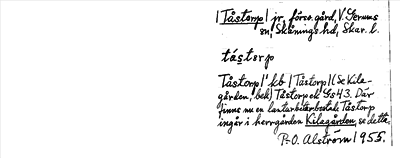 | Tåstorp | jr, förs. gård, V. Gerums
sn, Skånings hd, Skar. l.
tástɔrp
Tåstorp |' kb | Tåstorp | (Se Kile-
gården, bek) Tåstorp ek Gs 43. Där
finns nu en lantarbetarbostad. Tåstorp
ingår i herrgården Kilagården, se detta.
P-O. Alström 1955.